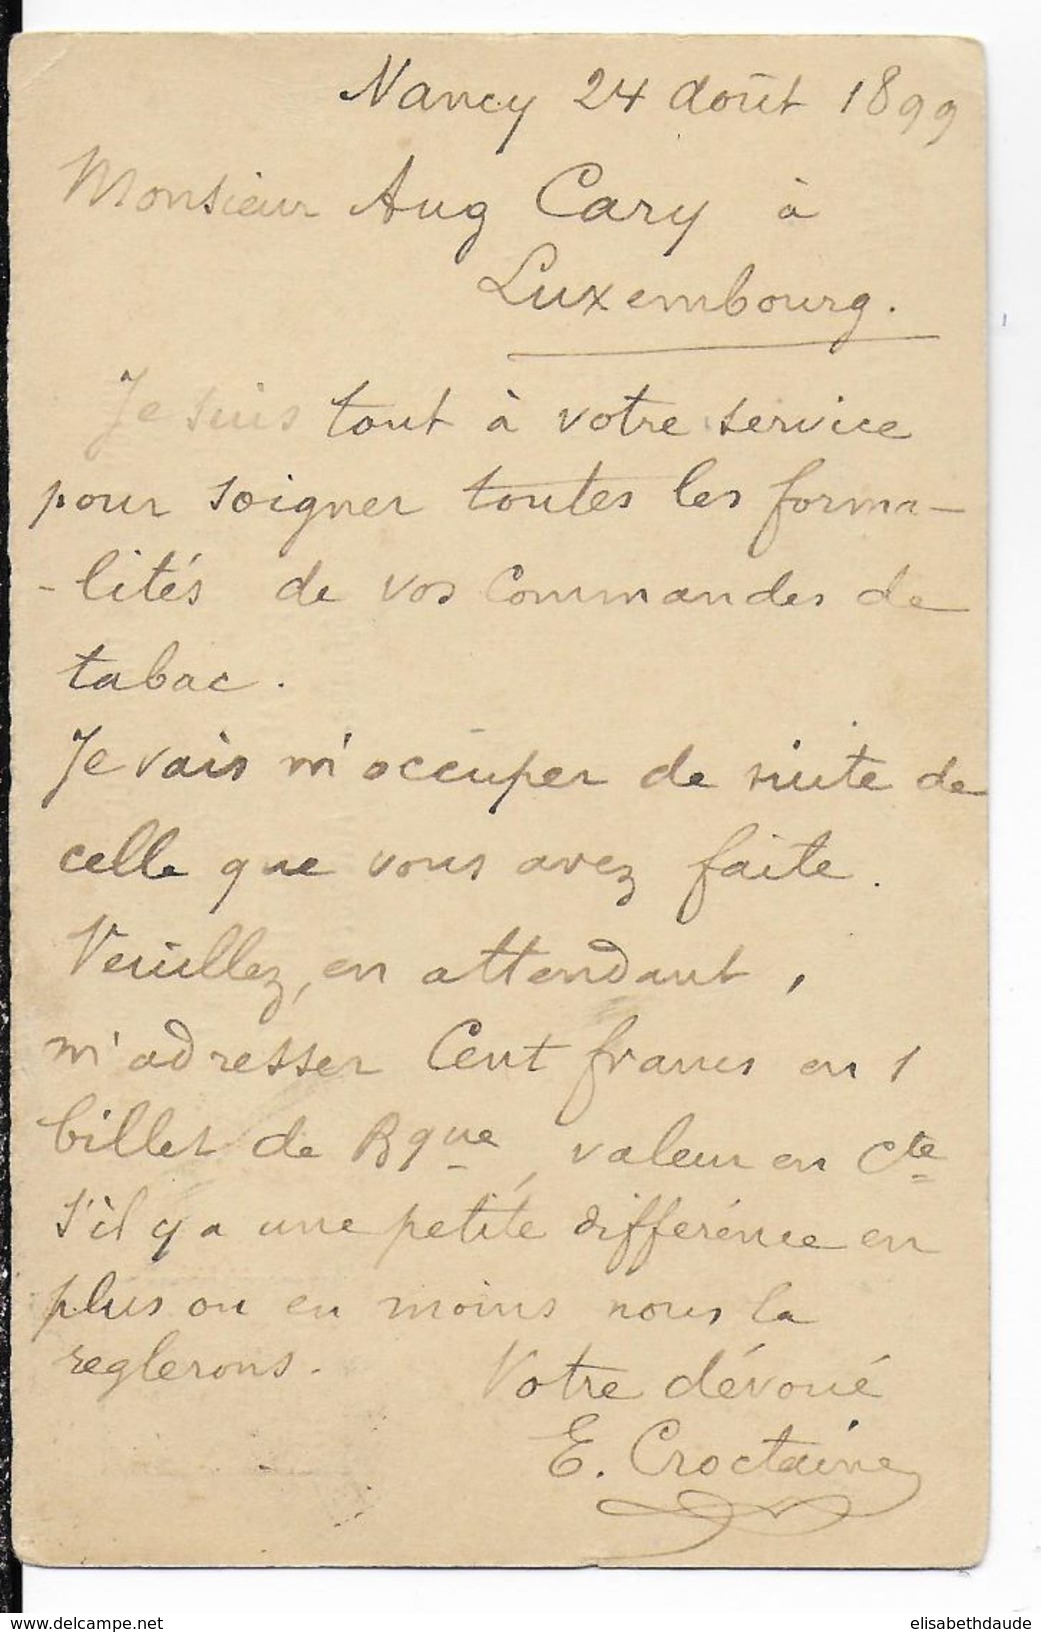 Nancy 24 août 1899
Monsieur Aug Cary à
Luxembourg.
Je suis tout à votre service
pour soigner toutes les forma-
-lités de vos commandes de
tabac.
Je vais m'occuper de suite de
celle que vous avez faite.
Veuillez, en attendant,
m'adresser Cent francs en 1
billet de Bque, valeur en Cte
S'il y a une petite différence en
plus ou en moins nous la
reglerons. Votre dévoué
E. Croctaine
www.delcampe.net
elisabethdaude